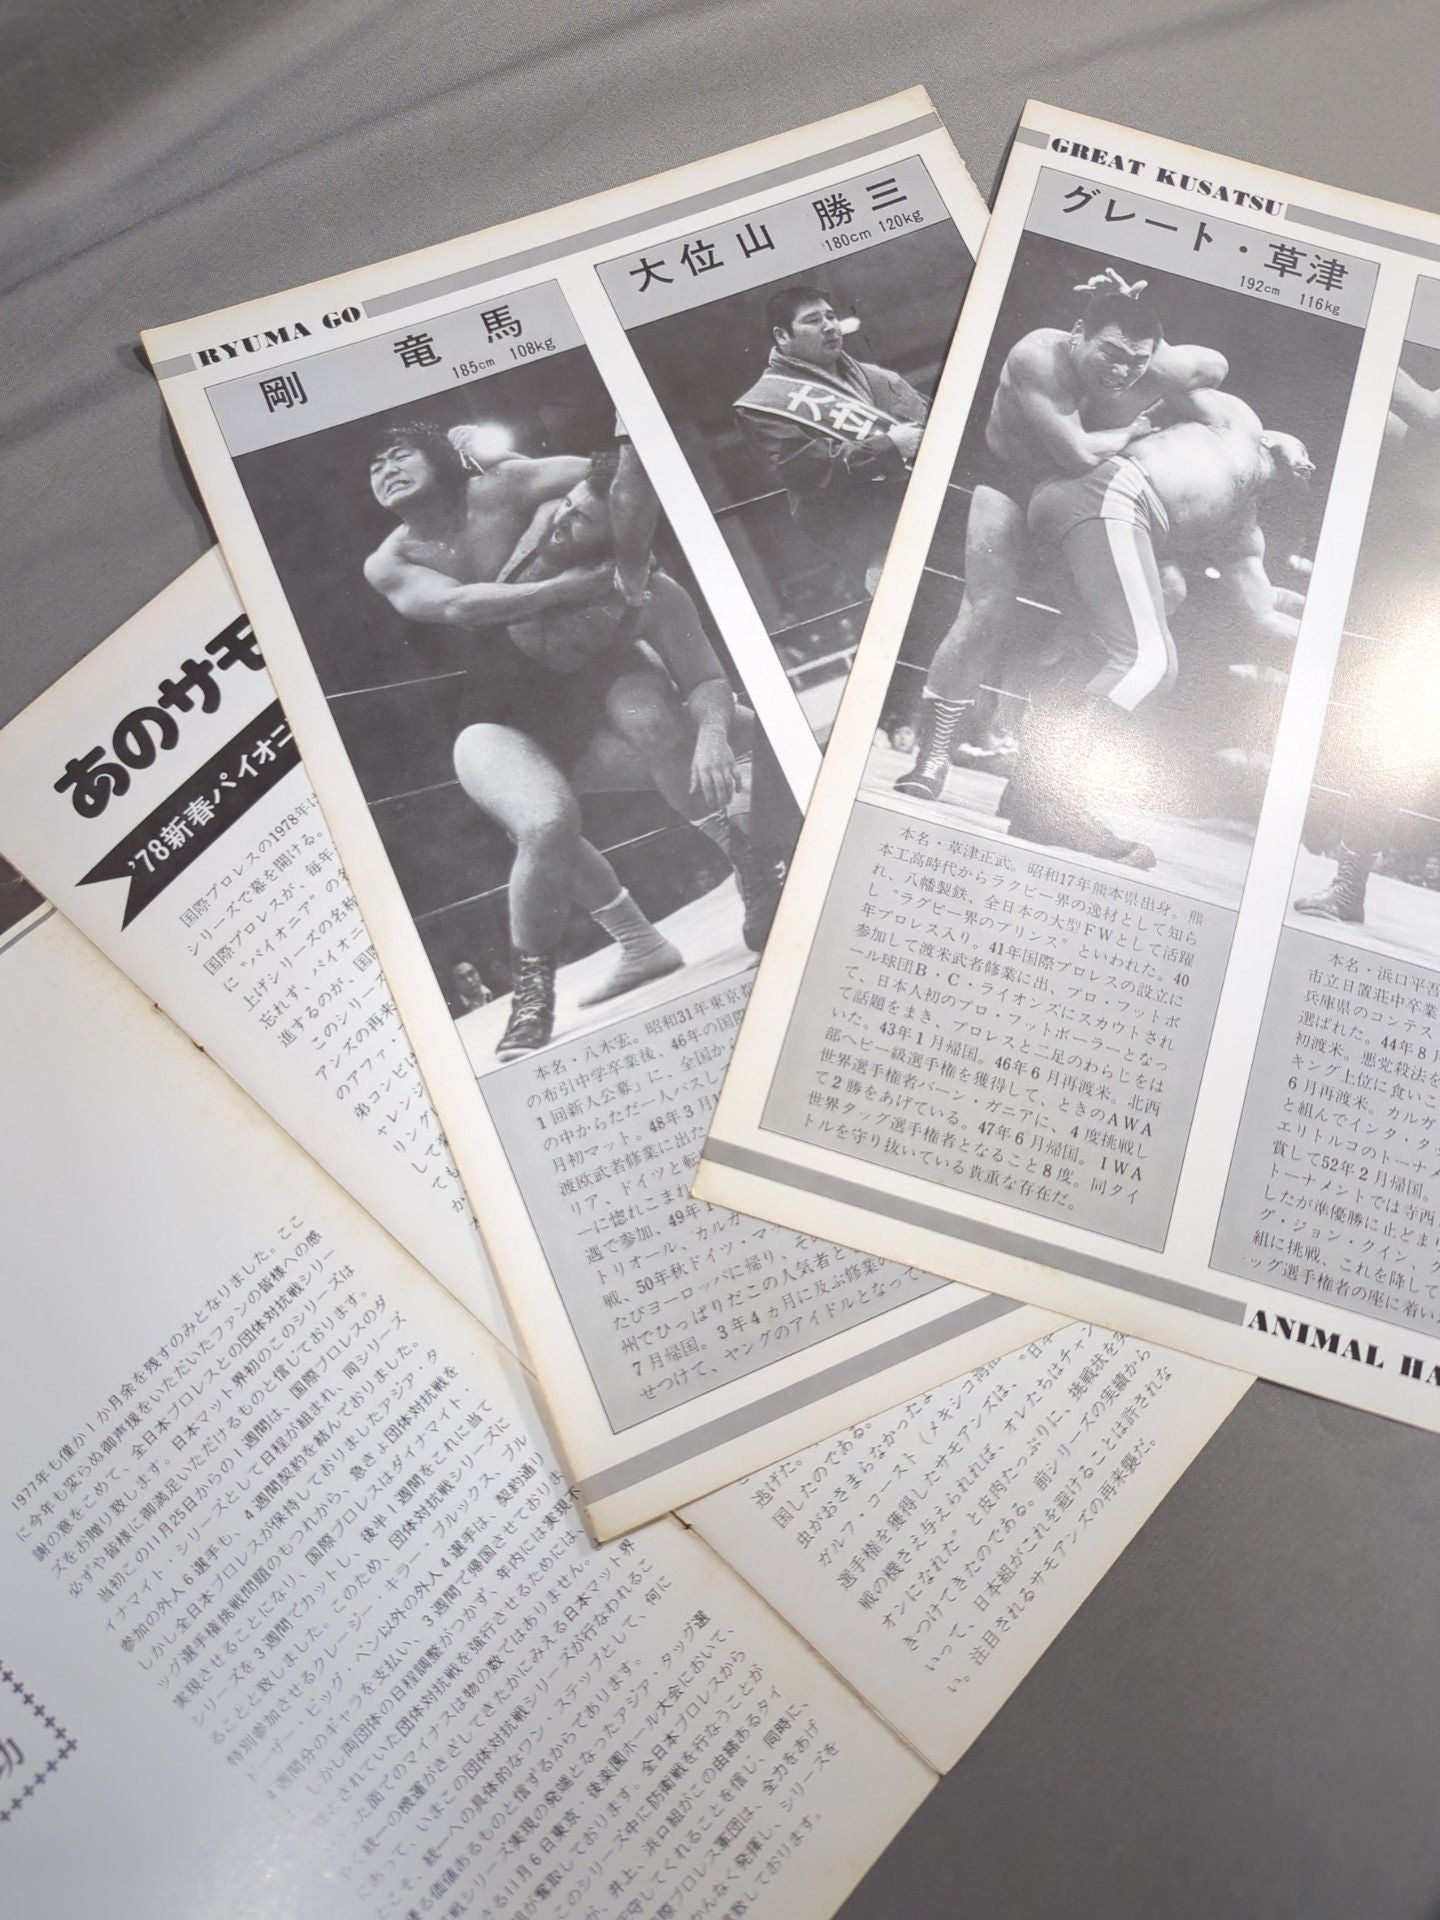 RYUMA GO
剛 竜 馬
185cm 108kg
大位山 勝三
180cm 120kg
大位
本名・八木宏。昭和31年東京都
の布引中学卒業後、46年の国際
1回新人公募」に、全国から
の中からただ一人パスして
月初マット。48年3月1
渡欧武者修業に出た
リア、ドイツと転
ーに惚れこまれ
遇で参加、49年1
トリオール、カルガ
戦、50年秋ドイツ・マッ
たびヨーロッパに帰り、そ
州でひっぱりだこの人気者と
7月帰国。3年4ヵ月に及ぶ修業の
せつけて、ヤングのアイドルとなって
GREAT KUSATSU
グレート・草津
192cm 116kg
本名・草津正武。昭和17年熊本県出身。熊
本工高時代からラクビー界の逸材として知ら
れ、八幡製鉄、全日本の大型FWとして活躍
し“ラグビー界のプリンス”といわれた。40
年プロレス入り。41年国際プロレスの設立に
参加して渡米武者修業に出、プロ・フットボ
ール球団B・C・ライオンズにスカウトされ
て、日本人初のプロ・フットボーラーとなっ
て話題をまき、プロレスと二足のわらじをは
いた。43年1月帰国。46年6月再渡米。北西
部ヘビー級選手権を獲得して、ときのAWA
世界選手権者バーン・ガニアに、4度挑戦し
て2勝をあげている。47年6月帰国。IWA
世界タッグ選手権者となること8度。同タイ
トルを守り抜いている貴重な存在だ。
本名・浜口平吾
市立日置荘中卒業
兵庫県のコンテス
選ばれた。44年8月
初渡米。悪党殺法を
キング上位に食いこ
6月再渡米。カルガ
と組んでインタ・タッ
エリトルコのトーナメ
賞して52年2月帰国。
トーナメントでは寺西
したが準優勝に止どまり
グ・ジョン・クイン、ク
組に挑戦、これを降して
ッグ選手権者の座に着い
ANIMAL HA
あのサモ
'78新春パイオニ
国際プロレスの1978年は
シリーズで幕を開ける。
国際プロレスが、毎年
に“パイオニア”の名
上げシリーズの名称
忘れず、パイオニ
進するのが、国際
このシリーズ
アンズの再来
のアファ・
弟コンビは
ャレンジ
リング
して
ても
か
逃げた。
国したのである。
虫がおさまらなかったよ
ガルフ・コースト（メキシコ湾沿
選手権を獲得したサモアンズは、“日本
戦の機さえ与えられれば、オレたちはチャン
オンになれた”と皮肉たっぷりに、挑戦状を
きつけてきたのである。前シリーズの実績から
いって、日本組がこれを避けることは許されな
い。注目されるサモアンズの再来襲だ。
1977年も僅か1か月余を残すのみとなりました。ここ
に今年も変らぬ御声援をいただいたファンの皆様への感
謝の意をこめて、全日本プロレスとの団体対抗戦シリー
ズをお贈り致します。日本マット界初のこのシリーズは
必ずや皆様に御満足いただけるものと信じております。
当初この11月25日からの1週間は、国際プロレスのダ
イナマイト・シリーズとして日程が組まれ、同シリーズ
参加の外人6選手も、4週間契約を結んでおりました。
しかし全日本プロレスが保持しておりましたアジア・タ
ッグ選手権挑戦問題のもつれから、急きょ団体対抗戦を
実現させることになり、国際プロレスはダイナマイト・
シリーズを3週間でカットし、後半1週間をこれに当て
ることと致しました。このため、団体対抗戦シリーズに
特別参加させるクレージー・キラー・ブルックス、ブル
ドーザー・ビッグ・ベン以外の外人4選手は、契約通り
4週間分のギャラを支払い、3週間で帰国させておりま
しかし両団体の日程調整がつかず、年内には実現不
とされていた団体対抗戦を強行させるためには、
いった面でのマイナスは物の数ではありません。
統一の機運がきざしてきたかにみえる日本マット界
にあって、いまこの団体対抗戦シリーズが行なわれるこ
とこそ、統一への具体的なワン・ステップとして、何に
る価値あるものと信ずるからであります。
戦シリーズ実現の発端となったアジア・タッグ選
る11月6日東京・後楽園ホール大会において、
組が奪取しております。全日本プロレスから
このシリーズ中に防衛戦を行なうことが
が、井上、浜口組がこの由緒あるタイ
守してくれることを信じ、同時に、
際プロレス軍団は、全力をあげ
かんなく発揮し、シリーズを
致しております。
功